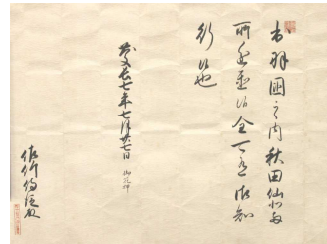 出羽国之内秋田仙北両
所進置候全可有御知
行候也
慶長七年七月廿七日 御花押
佐竹侍従殿